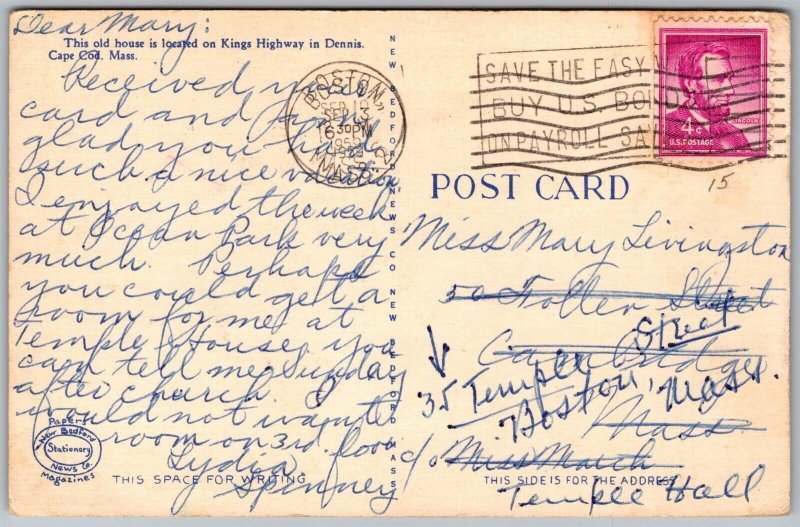 Dear Mary:
This old house is located on Kings Highway in Dennis.
Cape Cod, Mass.
Received your
card and am
glad you have
such a nice vacation
I enjoyed the week
at Ocean Park very
much. Perhaps
you could get a
room for me at
Temple House, you
can tell me Sunday
after church. I
would not want
room on 3rd floor
Lydia
Spinney
Papers
New Bedford
Stationary
News Co.
Magazines
THIS SPACE FOR WRITING
NEW BEDFORD NEWS CO NEW BEDFORD MASS
BOSTON,
SEP 13
6 30 PM
MASS.
SAVE THE EASY
BUY U.S. BONDS
ON PAYROLL SA
LINCOLN
4¢
U.S. POSTAGE
15
POST CARD
Miss Mary Livingston
50 Follen Street
Cambridge
Street
35 Temple
Boston, Mass.
Mass
c/o Miss March
THIS SIDE IS FOR THE ADDRESS
Temple Hall